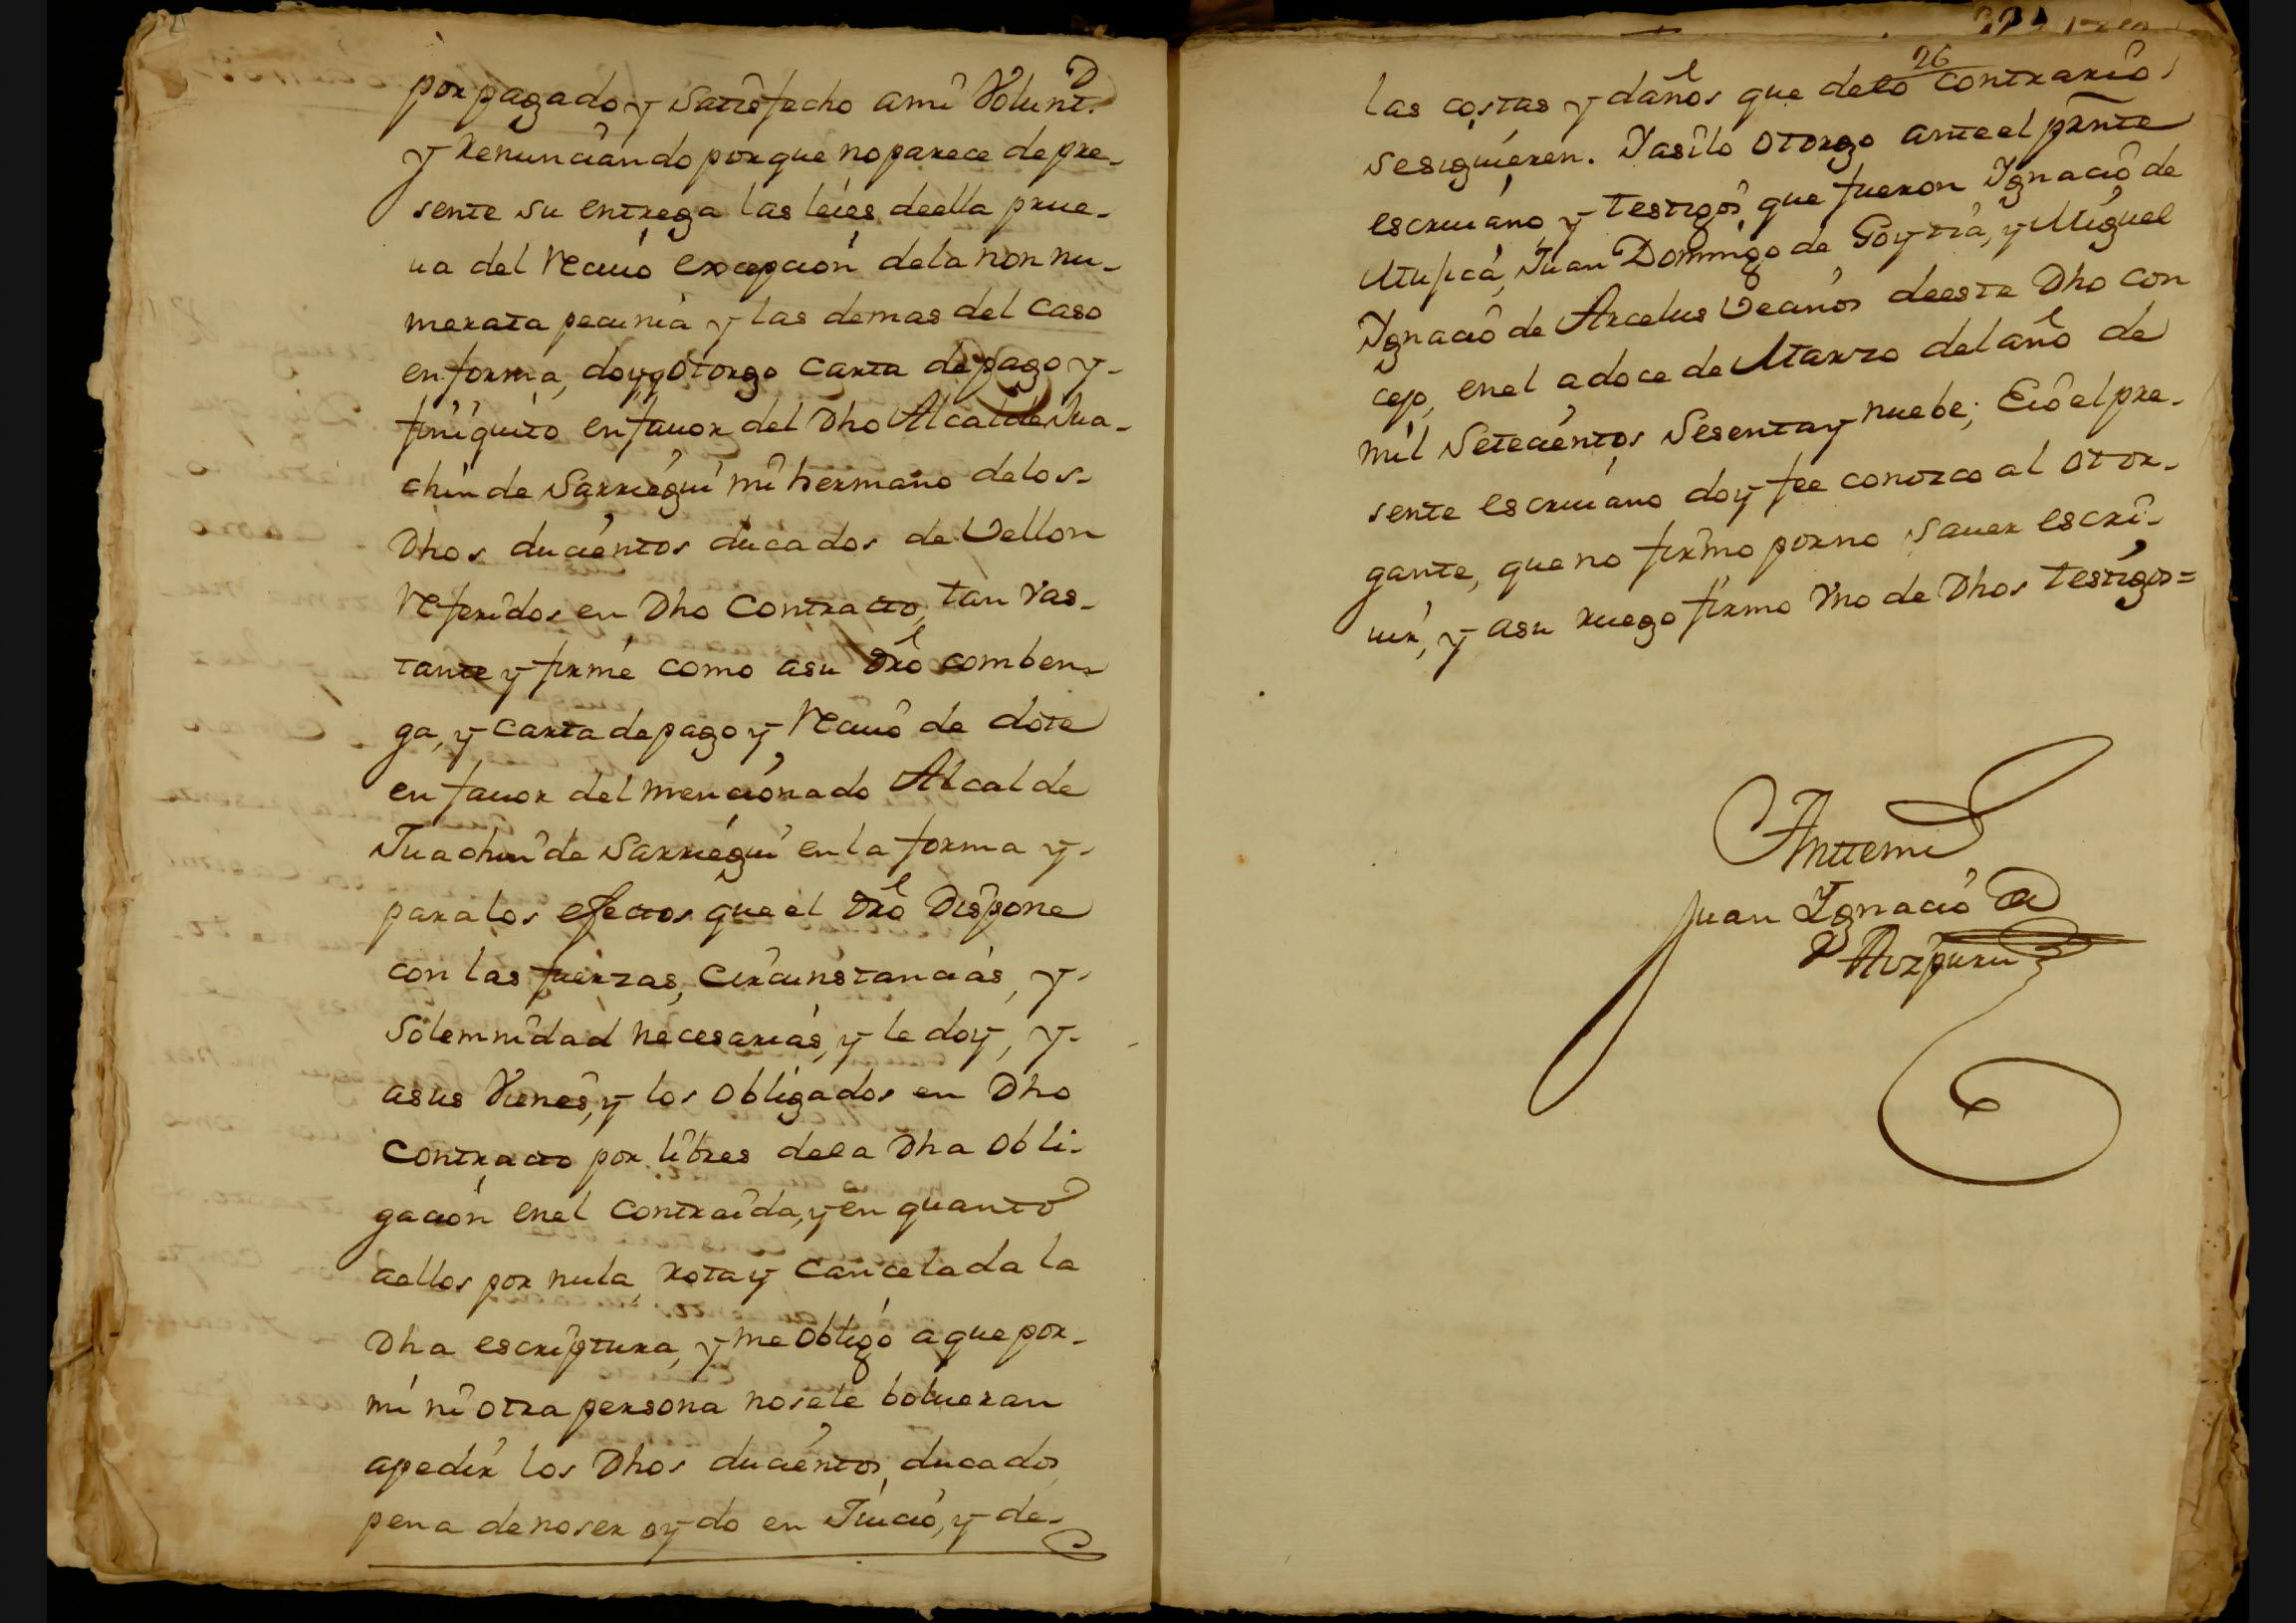 por pagado y Satisfecho ami Volunt.d
y Renunciando porque no parece de pre-
sente su entrega las leies deella prue-
ua del Reciuo excepcion dela non nu-
merata pecunia y las demas del caso
en forma, doy y otorgo Carta de pago y-
finiquito en fauor del Dho Alcalde Jua-
chin de Sarriegui mi hermano delos-
Dhos ducientos ducados de Vellon
Referidos en Dho Contracto, tan vas-
tante y firme como asu Dro comben-
ga, y Carta de pago y Reciuo de dote
en fauor del mencionado Alcalde
Juachin de Sarriegui en la forma y-
para los efectos que el Dro Dispone
con las fuerzas, Circunstancias, y-
Solemnidad necesarias, y le doy, y-
asus Vienes, y los obligados en Dho
Contracto por libres deea Dha obli-
gacion enel Contraida, y en quanto
aellos por nula, rota y Cancelada la
Dha escriptura, y me obligo a que por-
mi ni otra persona nosele bolueran
apedir los Dhos ducientos, ducados
pena de no ser oydo en Juicio, y de-
26
las costas y daños que delo contrario
sesiguieren. Jasilo otorgo ante el prnte
escriuano y testigos que fueron Ignacio de
Juan Domingo de Goytia, y Miguel
Ignacio de Arcelus Vecinos deeste Dho con
cejo, enel adoce de Marzo del año de
mil Setecientos Sesenta y nuebe; Eio el pre-
sente escriuano doy fee conozco al otor-
gante, que no firmo porno Sauer escri-
uir, y asu ruego firmo Vno de Dhos testigos=
Anttemi
Juan Ignacio de
Aizpuru